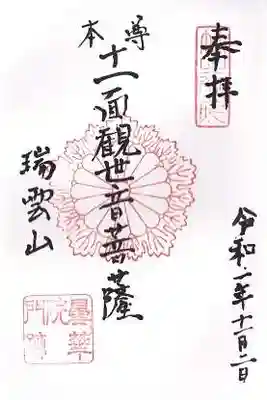 奉拝
令和一年十一月二日
本尊
十一面観世音菩薩
瑞雲山